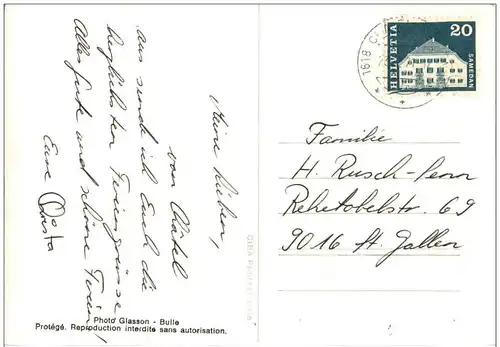 Meine Lieben,
von Châtel
aus sende ich Euch die
herzlichsten Feriengrüsse
Alles gute und schöne Ferien,
Eure
Photo Glasson - Bulle
Protégé. Reproduction interdite sans autorisation.
1618
HELVETIA
20
SAMEDAN
Familie
H. Rusch-
Rehetobelstr. 69
9016 St. Gallen